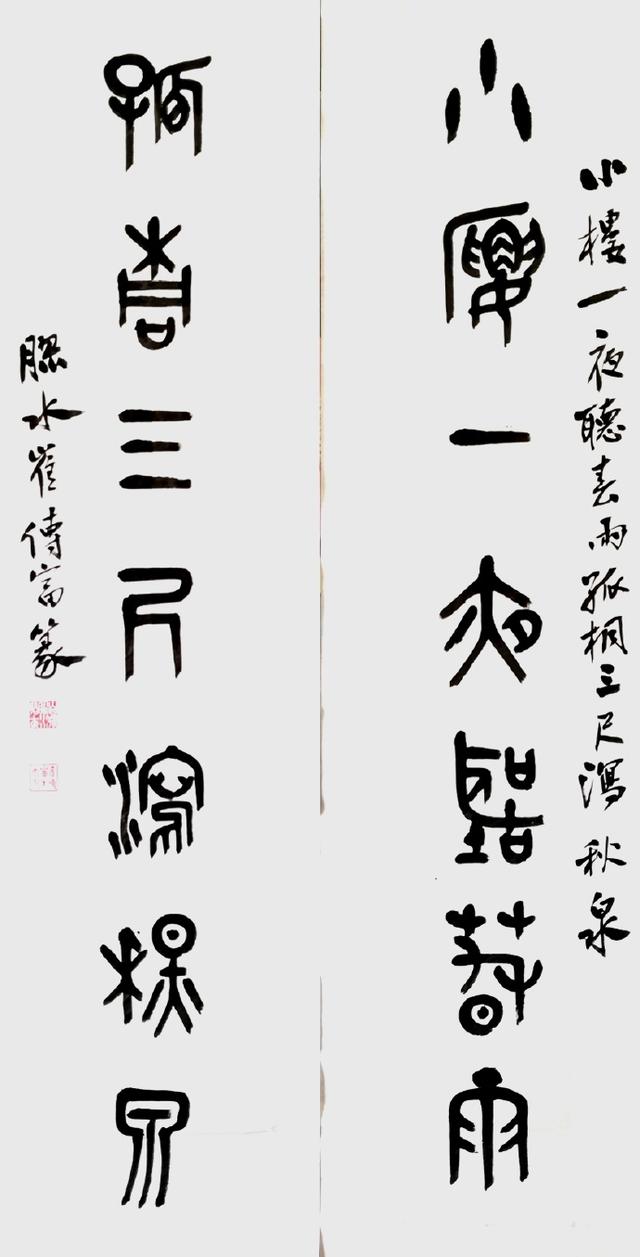 小樓一夜聽春雨孤桐三尺瀉秋泉
小樓一夜聽春雨
孤桐三尺瀉秋泉
膠水崔傳富篆